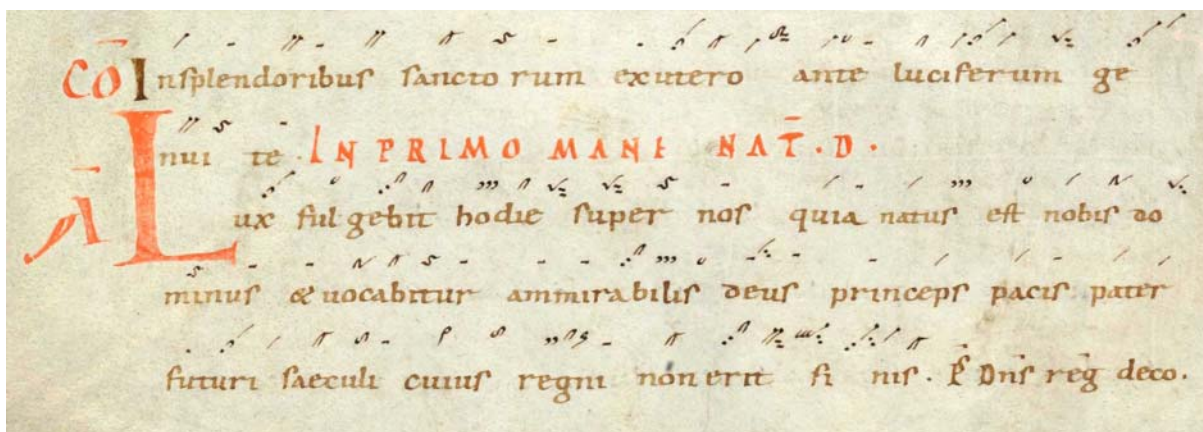 CŌ Insplendoribus sancto rum exutero ante luciferum ge
nui te. IN PRIMO MANE NAT̄. D.
A̅ Lux fulgebit hodie super nos quia natus est nobis do
minus &uocabitur ammirabilis deus princeps pacis pater
futuri saeculi cuius regni non erit fi nis. P̄s Dn̄s reḡ deco.